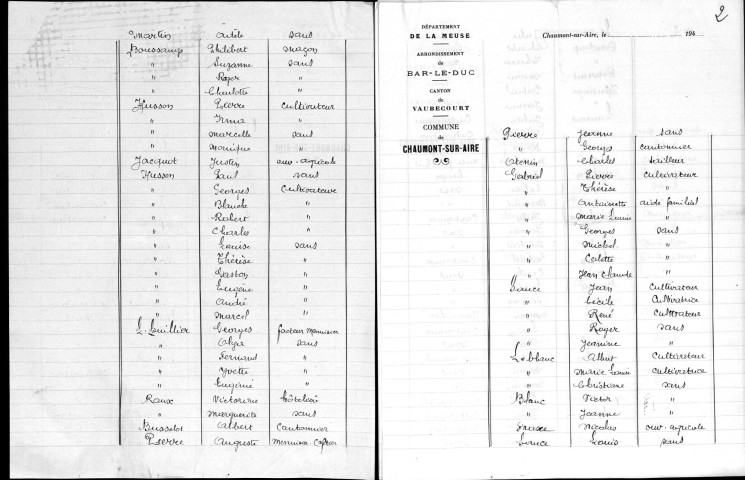 Martin Adèle sans
Boussamp Philibert maçon
" Suzanne sans
" Roger "
" Charlotte "
Husson Pierre cultivateur
" Irma "
" Marcelle sans
" Monique "
Jacquot Justin ouv. agricole
Husson Paul sans
" Georges Cultivateur
" Blanche "
" Robert "
" Charles "
" Louise sans
" Thérèse "
" Gaston "
" Eugène "
" André "
" Marcel "
L. huillier Georges facteur
" Olga sans
" Fernand "
" Yvette "
" Eugénie "
Raux Victorine hôtelière
" Marguerite sans
Busselot Albert Cantonnier
Pierre Auguste
2
DÉPARTEMENT
DE LA MEUSE
ARRONDISSEMENT
de
BAR-LE-DUC
CANTON
de
VAUBECOURT
COMMUNE
de
CHAUMONT-SUR-AIRE
Chaumont-sur-Aire, le 194
Pierre Jeanne sans
" Georges cantonnier
Charles tailleur
Gabriel Pierre cultivateur
" Thérèse "
" Antoinette aide familial
" Marie Louise "
" Georges sans
" Michel "
" Colette "
" Jean Claude "
Jean Cultivateur
" Cécile Cultivatrice
" René Cultivateur
" Roger sans
" Jeanine "
Leblanc Albert Cultivateur
" Marie Louise cultivatrice
" Christiane sans
Blanc Victor "
" Jeanne "
Nicolas ouv. agricole
Louis sans